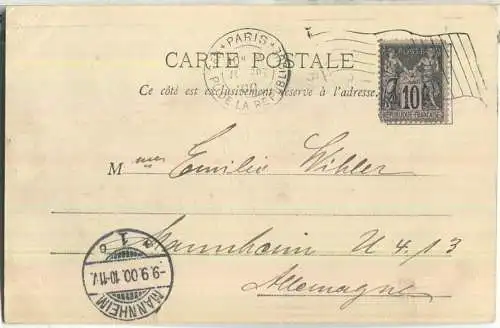 PARIS
PL. DE LA REPUBLIQUE
CARTE POSTALE
POSTES
10
REPUBLIQUE FRANÇAISE
Ce côté est exclusivement réservé à l'adresse.
Mme Emilie Wihler
Mannheim U 4.13
Allemagne
1 b
-9.9.00.10-11V.
MANNHEIM